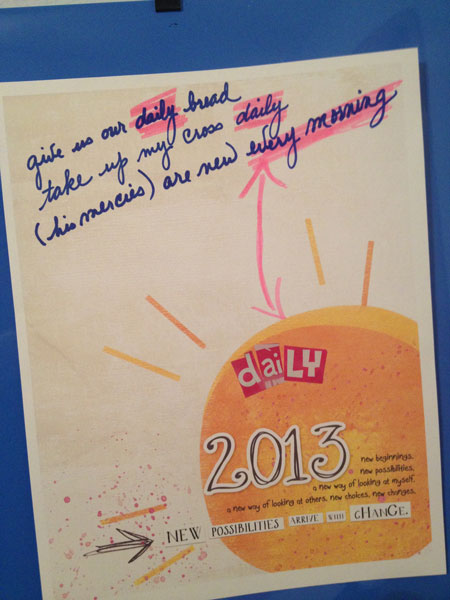 give us our daily bread
take up my cross daily
(his mercies) are new every morning
daiLY
2013
new beginnings,
new possibilities,
a new way of looking at myself,
a new way of looking at others, new choices, new changes,
NEW POSSIBILITIES ARRIVE WITH cHANGe.